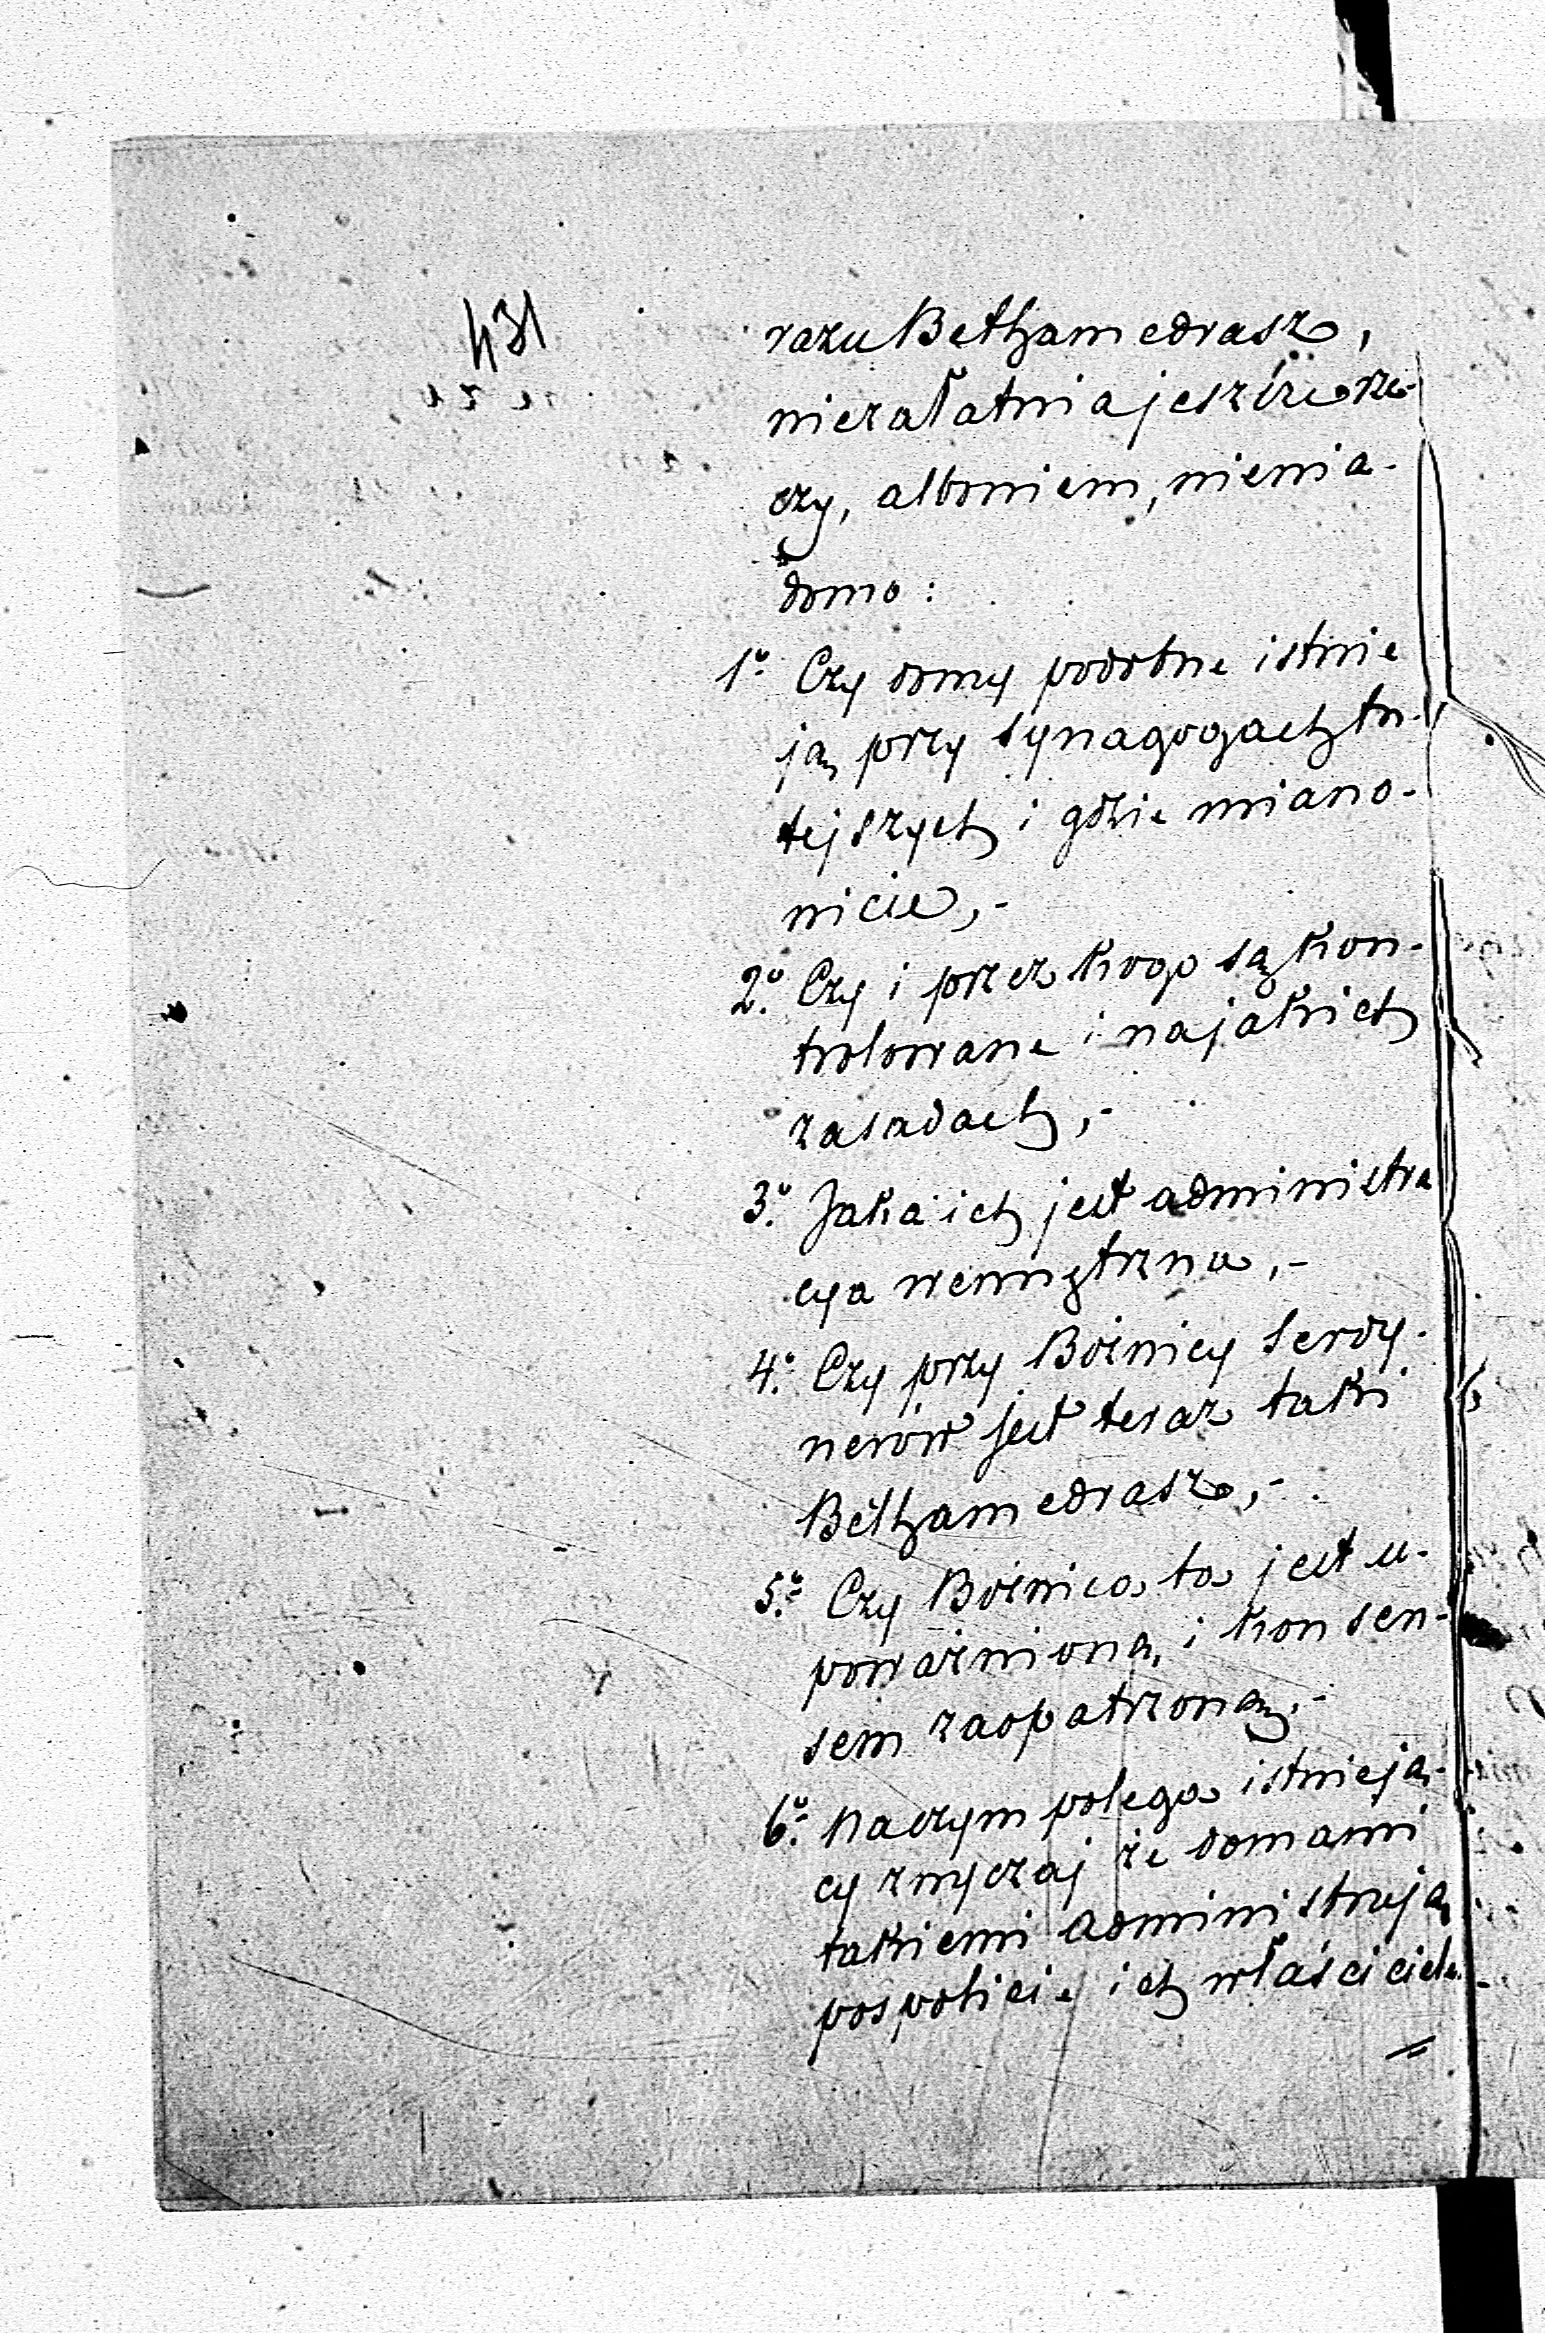 431
razu Bethamedrasz,
niezałatwia jeszcze rze-
czy, albowiem, niewia-
domo:
1o Czy domy podobne istnie
ją przy Synagogach tu-
tejszych i gdzie miano-
nicie,-
2o. Czy i przez kogo są kon-
trolowane i na jakich
zasadach,-
3o. Jaka ich jest administra
cya wewnętrzna,-
4o. Czy przy Bożnicy Serdy-
nerów jest teraz taki
Bethamedrasz,-
5o. Czy Bożnica ta jest u-
poważnioną i konsen-
sem zaopatrzoną,-
6o. Na czym polega istnieją-
cy zwyczaj że domami
takiemi administrują
pospolicie ich właściciele